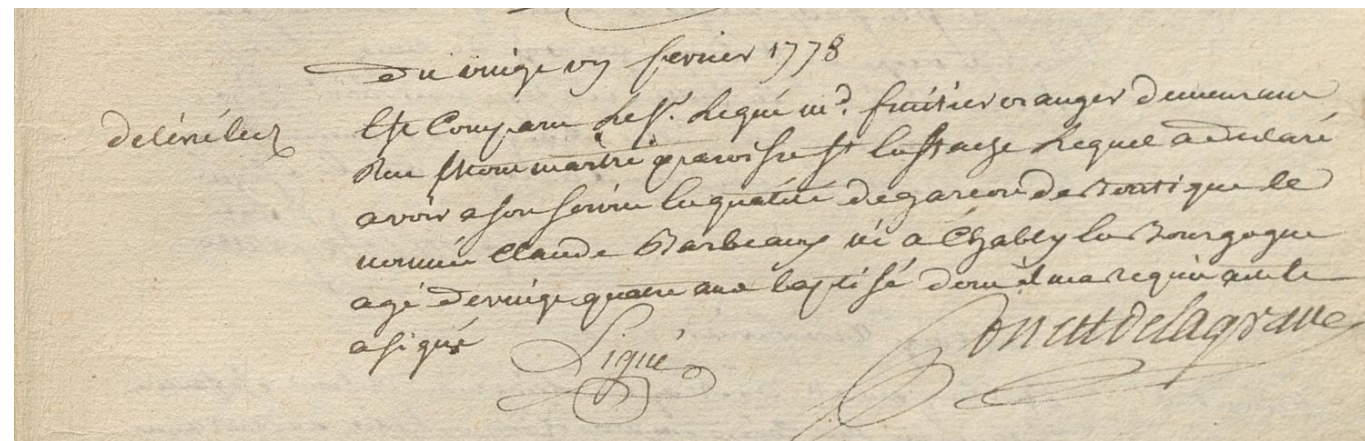 du vingt un fevrier 1778
Est Comparu Le Sr. Ligué md. fruitier oranger demeurant
Rue Montmartre paroisse St Eustache Lequel a declaré
avoir a son service En qualité de garcon de Boutique le
nommé Claude Barbeaux né a Chably En Bourgogne
agé de vingt quatre ans baptisé dont il m'a requis acte
a signé
Ligué